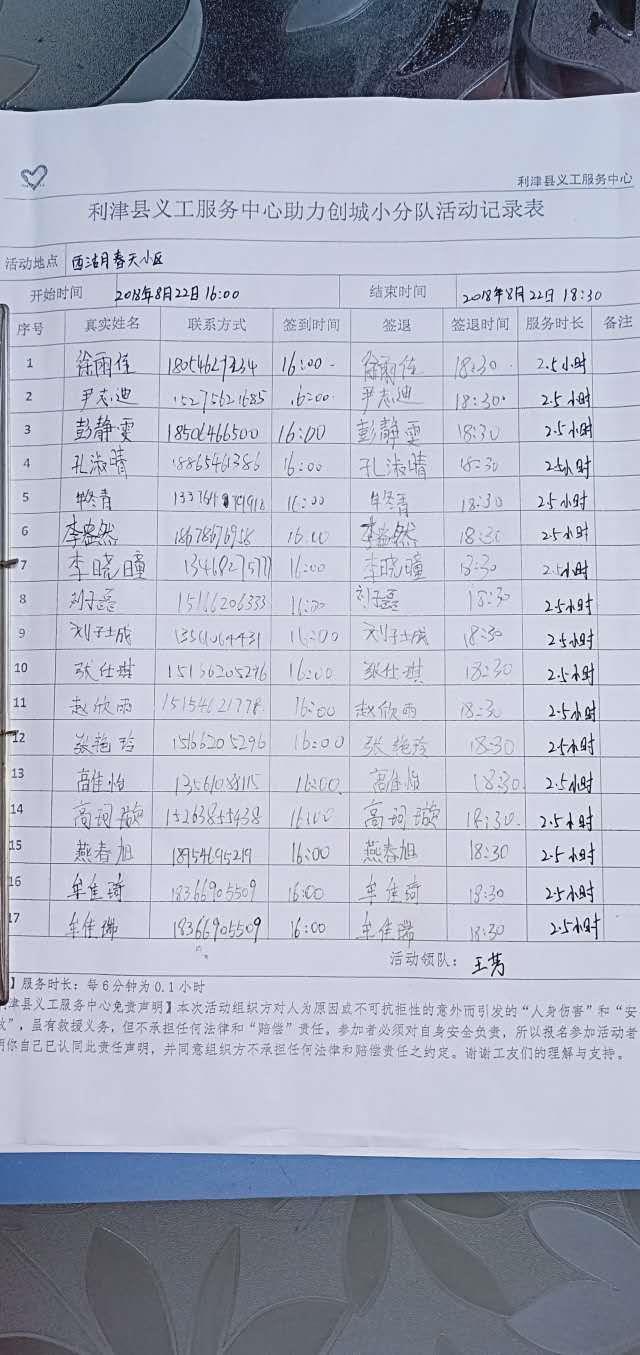 利津县义工服务中心
利津县义工服务中心助力创城小分队活动记录表
活动地点 西湖春天小区
开始时间 2018年8月22日16:00 结束时间 2018年8月22日 18:30
序号 真实姓名 联系方式 签到时间 签退 签退时间 服务时长 备注
1 徐雨佳 16:00 徐雨佳 18:30 2.5小时
2 尹志迪 15275621685 16:00 尹志迪 18:30 2.5小时
3 彭静雯 18506466500 16:00 彭静雯 18:30 2.5小时
4 孔淑晴 18865461386 16:00 孔淑晴 18:30 2.5小时
5 牛冬青 16:00 牛冬青 18:30 2.5小时
6 李盎然 18678676958 16:00 李盎然 18:30 2.5小时
7 李晓瞳 16:00 李晓瞳 18:30 2.5小时
8 刘子磊 15166206333 16:00 刘子磊 18:30 2.5小时
9 刘子成 13561064431 16:00 刘子成 18:30 2.5小时
10 张仕琪 15136205296 16:00 张仕琪 18:30 2.5小时
11 赵欣雨 15154621778 16:00 赵欣雨 18:30 2.5小时
12 张艳玲 15166205296 16:00 张艳玲 18:30 2.5小时
13 高佳怡 16:00 高佳怡 18:30 2.5小时
14 高珂璇 15263855438 16:00 高珂璇 18:30 2.5小时
15 燕春旭 18954695219 16:00 燕春旭 18:30 2.5小时
16 牟佳琦 18366905509 16:00 牟佳琦 18:30 2.5小时
17 牟佳瑞 18366905509 16:00 牟佳瑞 18:30 2.5小时
活动领队： 王芳
】服务时长：每6分钟为0.1小时
津县义工服务中心免责声明】本次活动组织方对人为原因或不可抗拒性的意外而引发的“人身伤害”和“安
”，虽有救援义务，但不承担任何法律和“赔偿”责任。参加者必须对自身安全负责，所以报名参加活动者
明你自己已认同此责任声明，并同意组织方不承担任何法律和赔偿责任之约定。谢谢工友们的理解与支持。